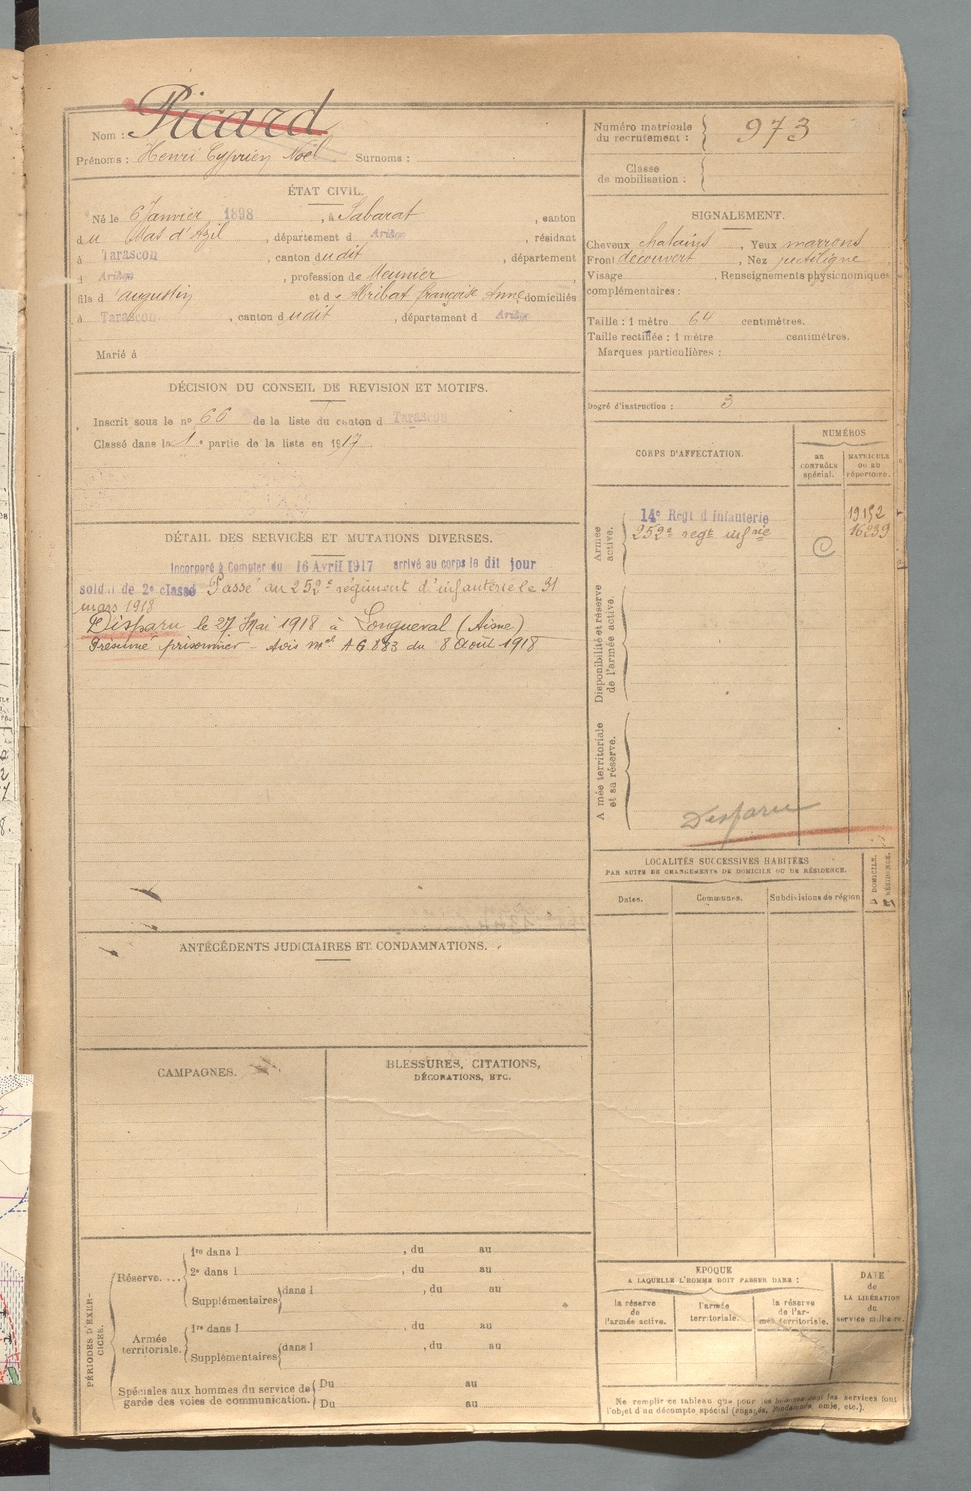 Nom : Picard
Prénoms : Henri Cyprien Noël Surnoms :
ÉTAT CIVIL.
Né le 6 Janvier 1898, à Sabarat, canton
du Mas d'Azil, département d Ariège, résidant
à Tarascon, canton dudit, département
d Ariège, profession de Meunier
fils d'augustin et de Françoise Anne, domiciliés
à Tarascon, canton dudit, département d Ariège
Marié à
DÉCISION DU CONSEIL DE REVISION ET MOTIFS.
Inscrit sous le no 66 de la liste du canton d Tarascon
Classé dans la 1e partie de la liste en 1917
DÉTAIL DES SERVICES ET MUTATIONS DIVERSES.
Incorporé à Compter du 16 Avril 1917 arrivé au corps le dit jour
soldat de 2e classe Passé au 252e régiment d'infanterie le 31
mars 1918
Disparu le 27 Mai 1918 à Longueval (Aisne)
Présumé prisonnier - Avis mel AG 883 du 8 août 1918
ANTÉCÉDENTS JUDICIAIRES ET CONDAMNATIONS.
CAMPAGNES.
BLESSURES, CITATIONS,
DÉCORATIONS, ETC.
PÉRIODES D'EXER-
CICES.
Réserve....
1re dans l , du au
2e dans l , du au
Supplémentaires dans l , du au
Armée
territoriale.
1re dans l , du au
Supplémentaires dans l , du au
Spéciales aux hommes du service de
garde des voies de communication.
Du au
Du au
Numéro matricule
du recrutement : 973
Classe
de mobilisation :
SIGNALEMENT.
Cheveux chatains, Yeux marrons
Front découvert, Nez
Visage , Renseignements physionomiques
complémentaires :
Taille : 1 mètre 64 centimètres.
Taille rectifiée : 1 mètre centimètres.
Marques particulières :
Degré d'instruction : 3
CORPS D'AFFECTATION.
NUMÉROS
au
CONTRÔLE
spécial.
MATRICULE
OU AU
répertoire.
Armée
active.
14e Regt d'Infanterie 19152
252e regt infrie 16239
Disponibilité et réserve
de l'armée active.
Armée territoriale
et sa réserve.
Disparu
LOCALITÉS SUCCESSIVES HABITÉES
PAR SUITE DE CHANGEMENTS DE DOMICILE OU DE RÉSIDENCE.
Dates.
Communes.
Subdivisions de région
D DOMICILE.
R RÉSIDENCE.
ÉPOQUE
A LAQUELLE L'HOMME DOIT PASSER DANS :
la réserve
de
l'armée active.
l'armée
territoriale.
la réserve
de l'ar-
mée territoriale.
DATE
de
LA LIBÉRATION
du
service militaire.
Ne remplir ce tableau que pour les hommes dont les services font
l'objet d'un décompte spécial (engagés, omis, etc.).